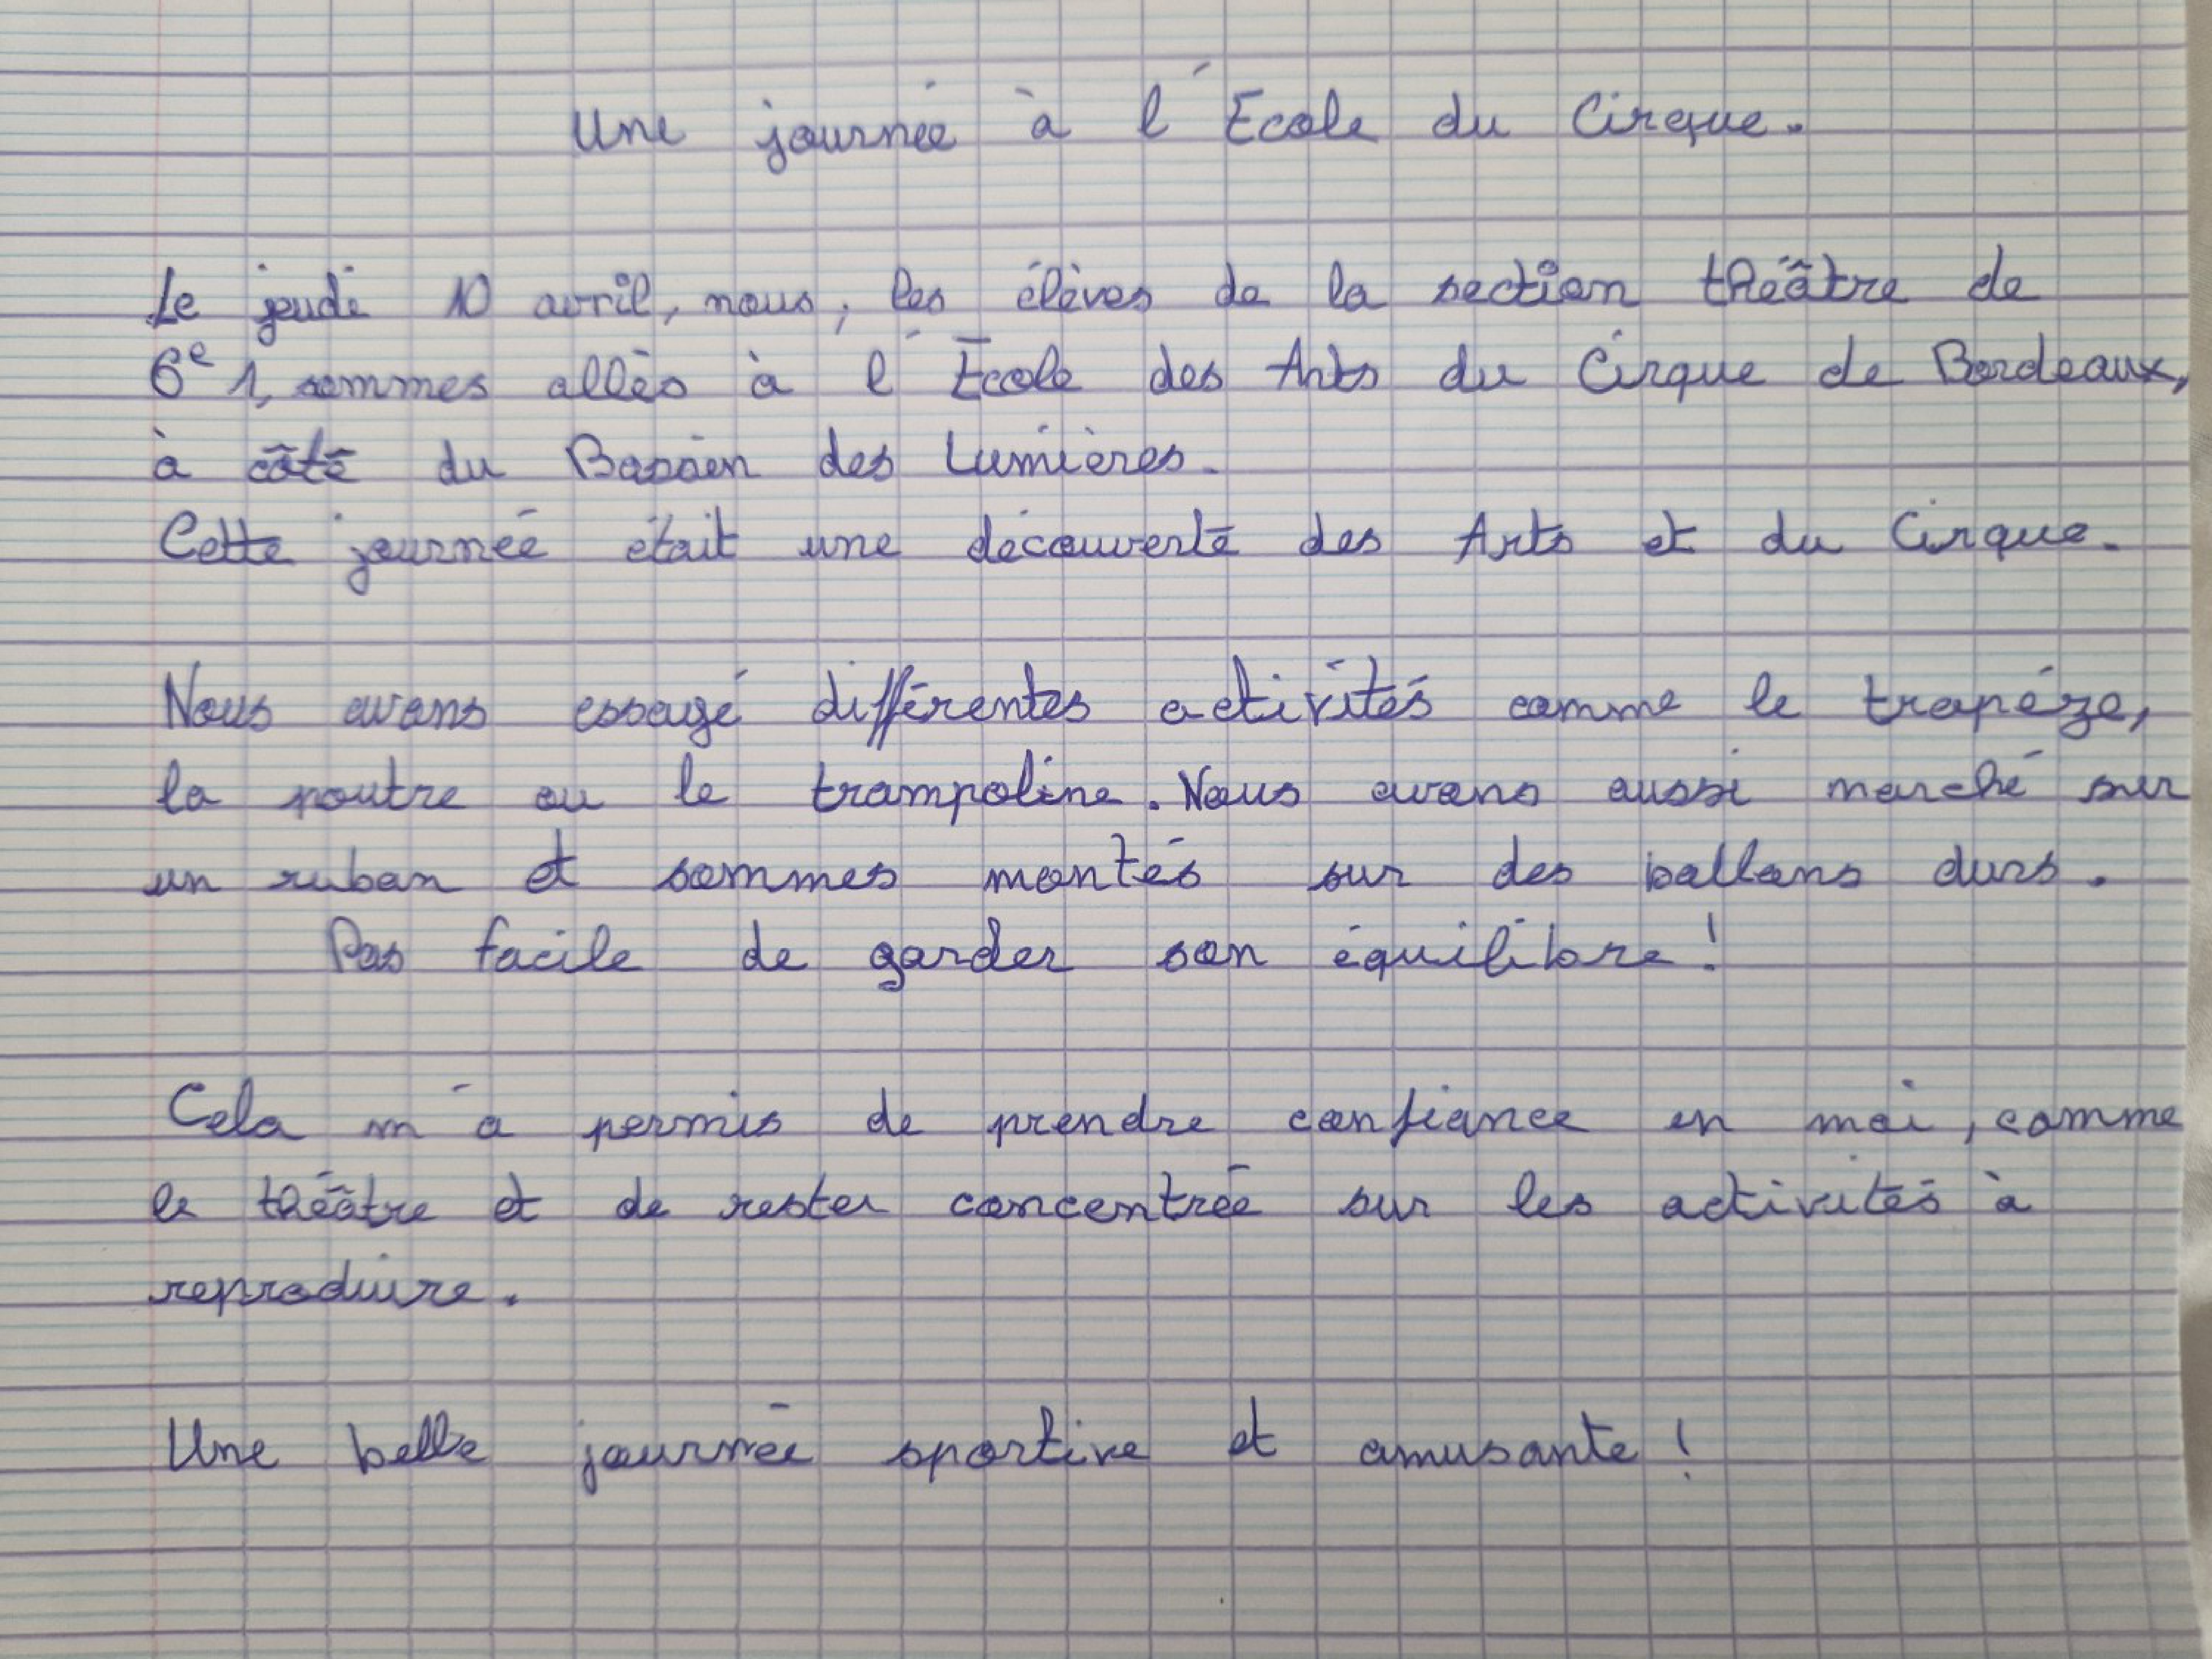 Une journée à l'École du Cirque.
Le jeudi 10 avril, nous, les élèves de la section théâtre de
6e 1, sommes allés à l'École des Arts du Cirque de Bordeaux,
à côté du Bassin des Lumières.
Cette journée était une découverte des Arts et du Cirque.
Nous avons essayé différentes activités comme le trapéze,
la poutre ou le trampoline. Nous avons aussi marché sur
un ruban et sommes montés sur des ballons durs.
Pas facile de garder son équilibre !
Cela m'a permis de prendre confiance en moi, comme
le théâtre et de rester concentrée sur les activités à
reproduire.
Une belle journée sportive et amusante !